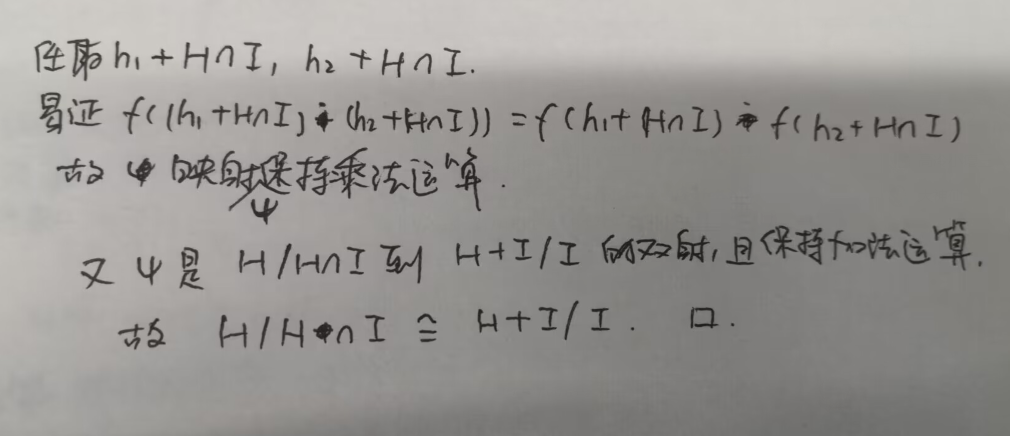 任取 h₁+H∩I, h₂+H∩I.
易证 f((h₁+H∩I)·(h₂+H∩I)) = f(h₁+H∩I)·f(h₂+H∩I)
故 映射ψ保持乘法运算.
又 ψ 是 H/H∩I 到 H+I/I 的双射, 且保持加法运算.
故 H/H∩I ≅ H+I/I. □.